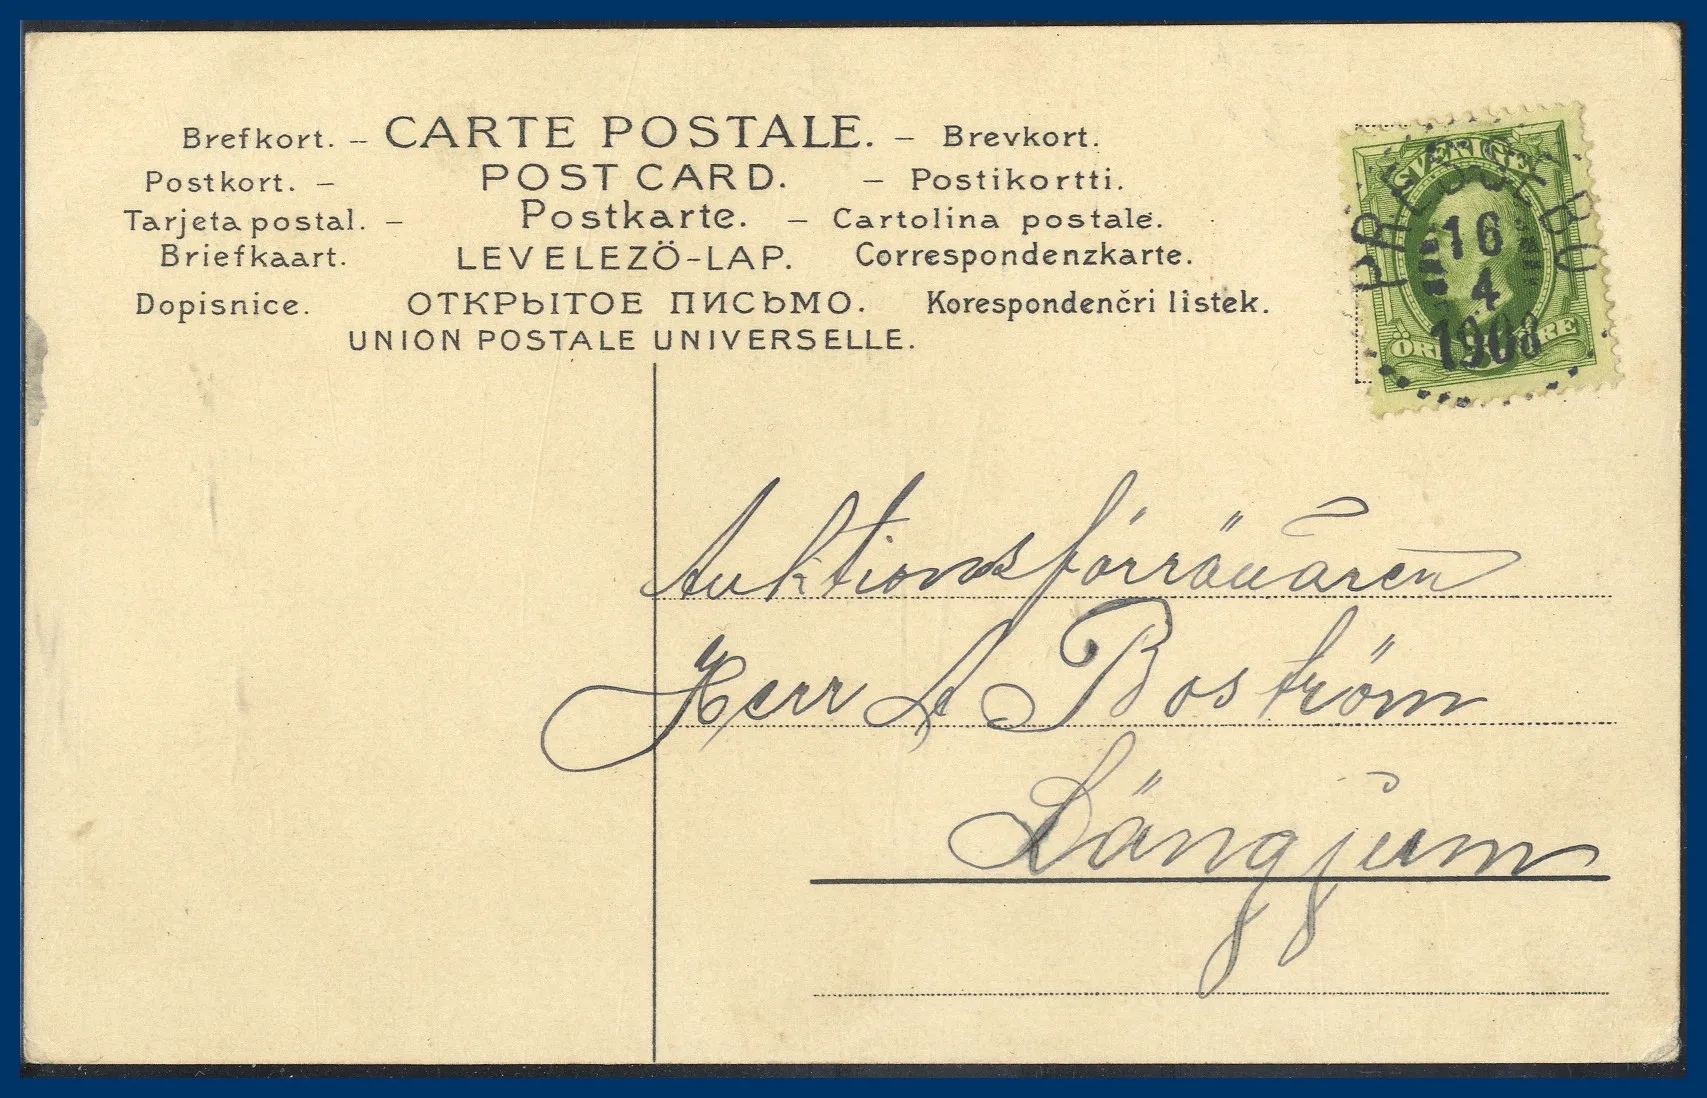 Brefkort. – CARTE POSTALE. – Brevkort.
Postkort. – POST CARD. – Postikortti.
Tarjeta postal. – Postkarte. – Cartolina postale.
Briefkaart. LEVELEZÖ-LAP. Correspondenzkarte.
Dopisnice. ОТКРЫТОЕ ПИСЬМО. Korespondenčri listek.
UNION POSTALE UNIVERSELLE.
SVERIGE
16
4
1908
ÖRE ÖRE
Auktionsförrättaren
Herr A Boström
Längjum